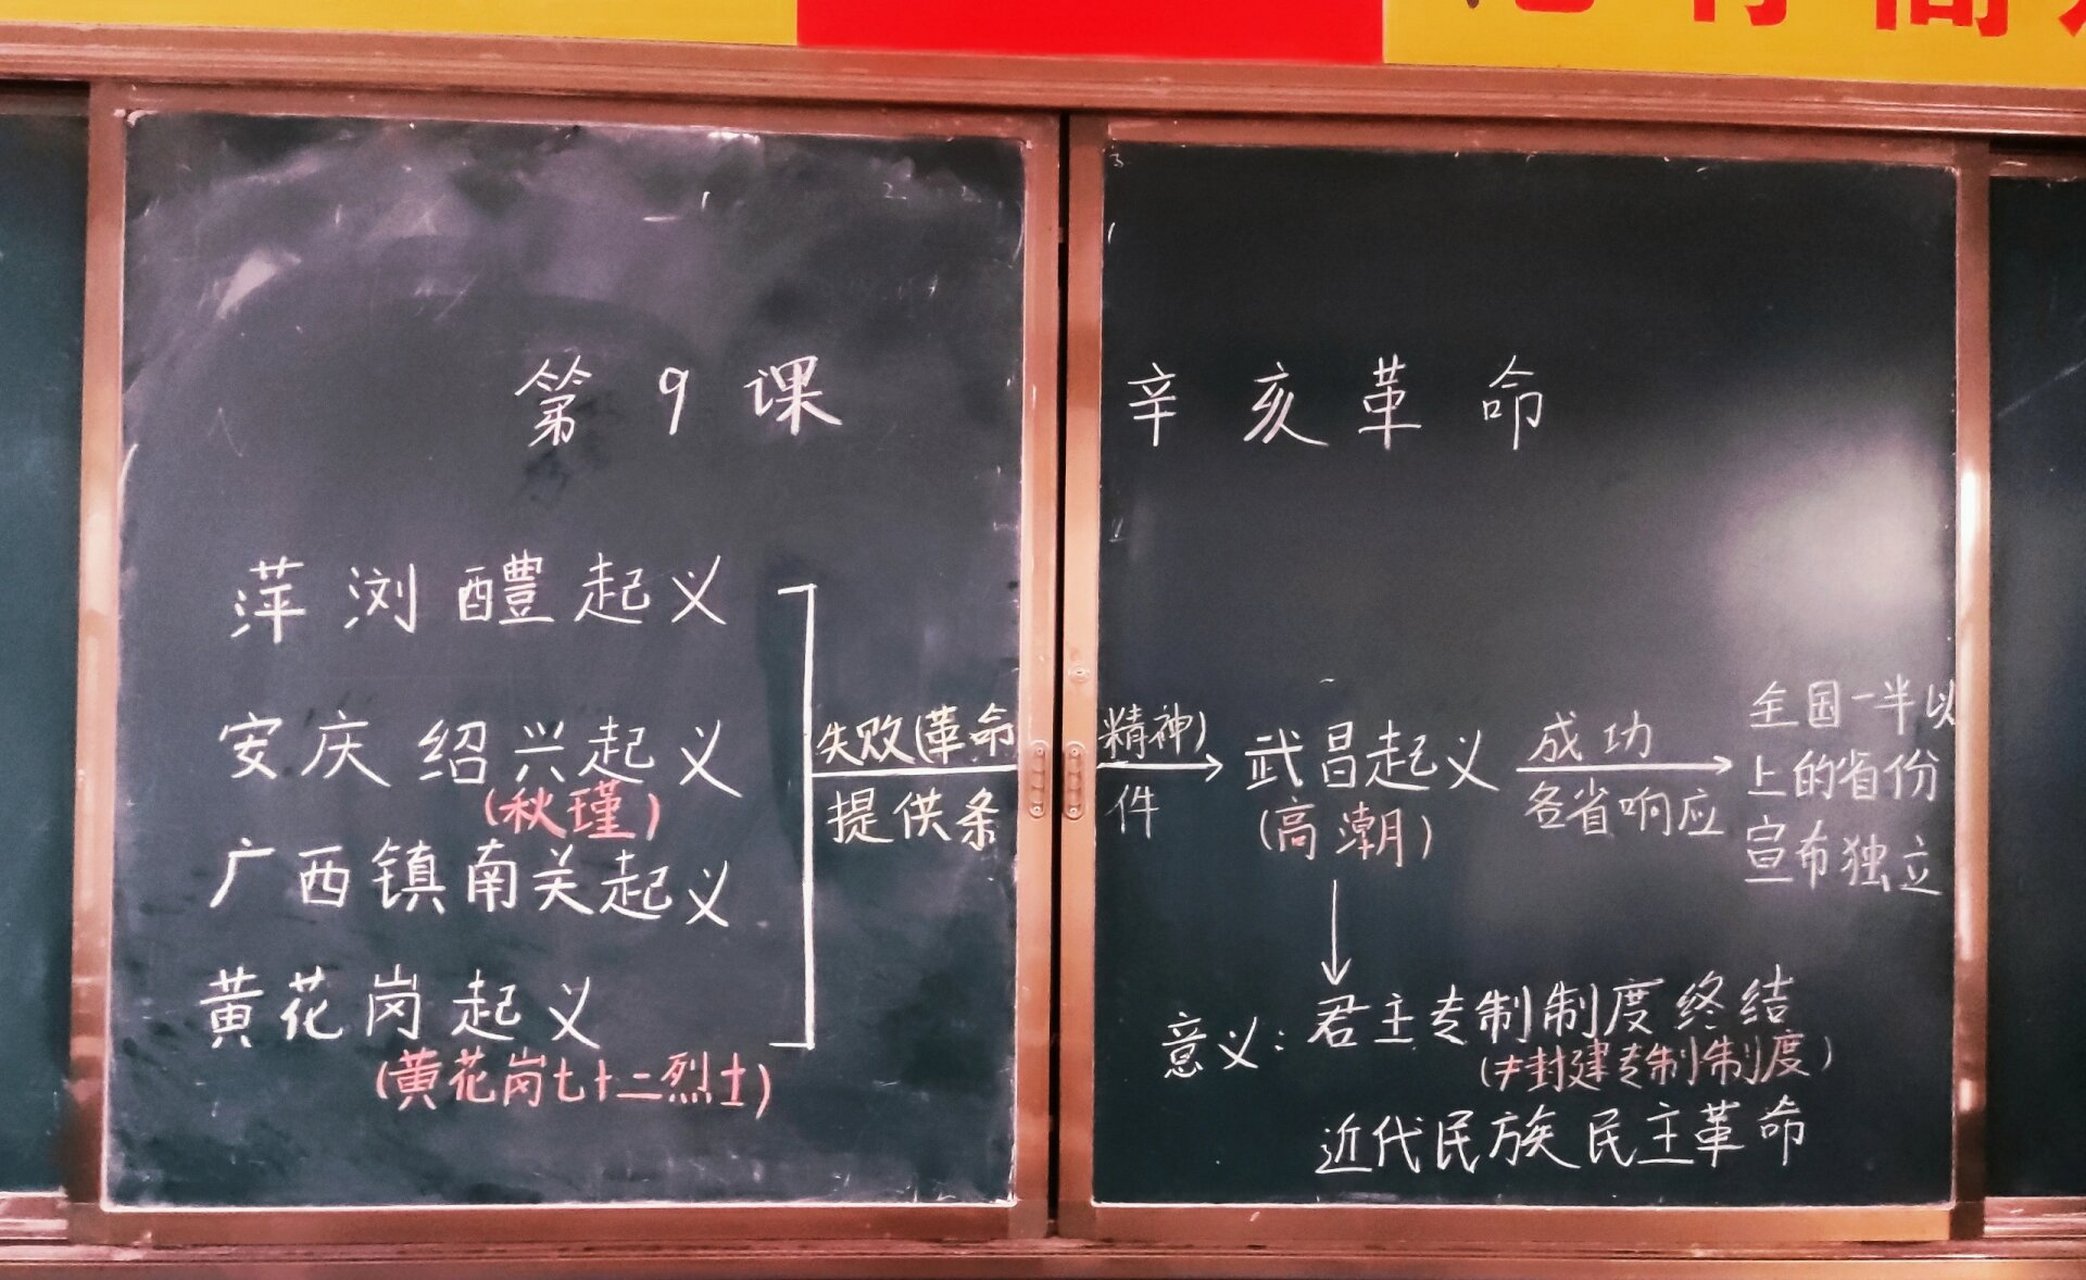 第9课 辛亥革命
萍浏醴起义
安庆 绍兴起义
(秋瑾)
广西镇南关起义
黄花岗起义
(黄花岗七十二烈士)
失败(革命精神)
提供条件
武昌起义
(高潮)
成功
各省响应
全国一半以
上的省份
宣布独立
意义:君主专制制度终结
(≠封建专制制度)
近代民族民主革命